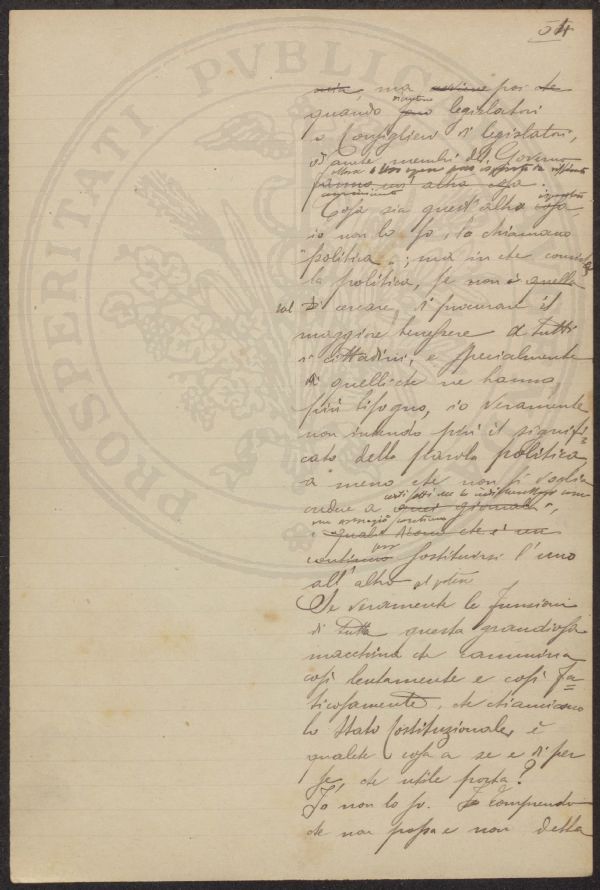 54
PROSPERITATI PVBLICAE
, ma poi che
diventano
quando sono legislatori
o Consiglieri di legislatori,
od anche membri del Governo
fanno altra cosa.
Cosa sia quest'altra cosa,
io non lo so, la chiamano
"politica"; ma in che consista
la politica, se non è quella
di cercare, di procurare il
maggiore benessere a tutti
i cittadini, e specialmente
di quelli che ne hanno
più bisogno, io veramente
non intendo più il signifi-
cato della parola politica
a meno che non si voglia
credere a quei giornali,
continuo sostituirsi l'uno
all'altro al potere
Se veramente le funzioni
di tutta questa grandiosa
macchina che cammina
così lentamente e così fa-
ticosamente, che chiamiamo
lo Stato Costituzionale, è
qualche cosa a se e di per
se, che utile porta?
Io non lo so. Io comprendo
che non possa e non debba